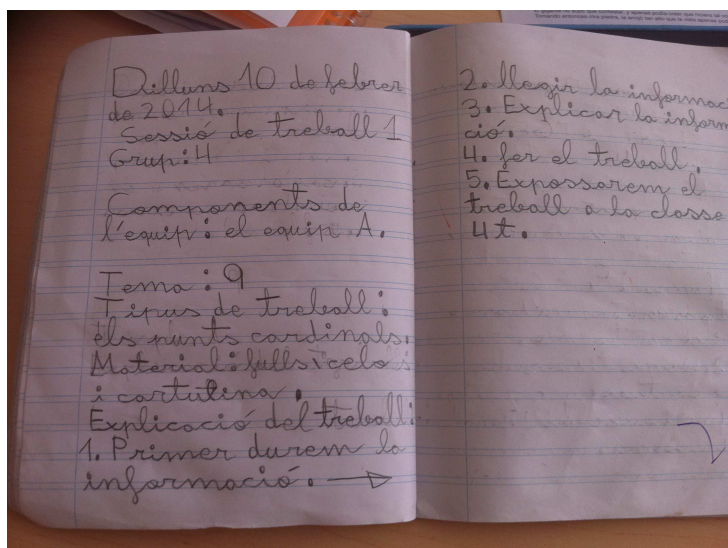 Dilluns 10 de febrer
de 2014.
Sessió de treball 1
Grup: 4
Components de
l'equip: el equip A.
Tema: 9
Tipus de treball:
els punts cardinals.
Material: fulls i celo i
i cartulina.
Explicació del treball:
1. Primer durem la
informació.
2. llegir la informac
3. Explicar la inform
ció.
4. fer el treball.
5. Expossarem el
treball a la classe
4t.